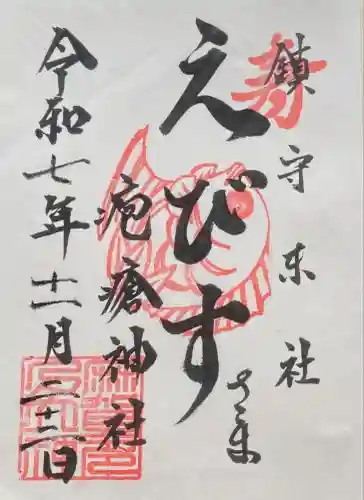 壽
鎮守末社
えびすさま
疱瘡神社
令和七年十一月二十三日